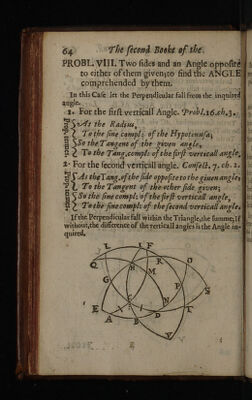 64 The second Booke of the.
PROBL. VIII. Two sides and an Angle opposite
to either of them given, to find the ANGLE
comprehended by them.
In this Case let the Perpendicular fall from the inquired
angle.
1. For the first verticall Angle. Probl. 16. ch. 3.
As the Radius,
To the sine compl: of the Hypotenusa;
So the Tangent of the given angle,
To the Tang. compl: of the first verticall angle.
2. For the second verticall angle. Consect. 7. ch. 2.
As the Tang. of the side opposite to the given angle,
To the Tangent of the other side given;
So the sine compl: of the first verticall angle,
To the sine compl: of the second verticall angle.
If the Perpendicular fall within the Triangle, the summe; If
without, the difference of the verticall angles is the Angle in-
quired.
L F
Q R O
H M
G
N P S
C
E A B I D
V T